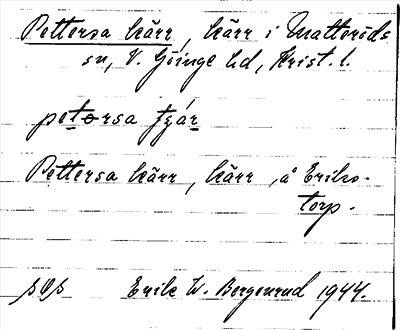 Pettersa kärr, kärr i Matteröds
sn, V. Göinge hd, Krist. l.
petərsa tɕár
Pettersa kärr, kärr, å Eriks-
torp.
Erik W. Bergenrud 1944.